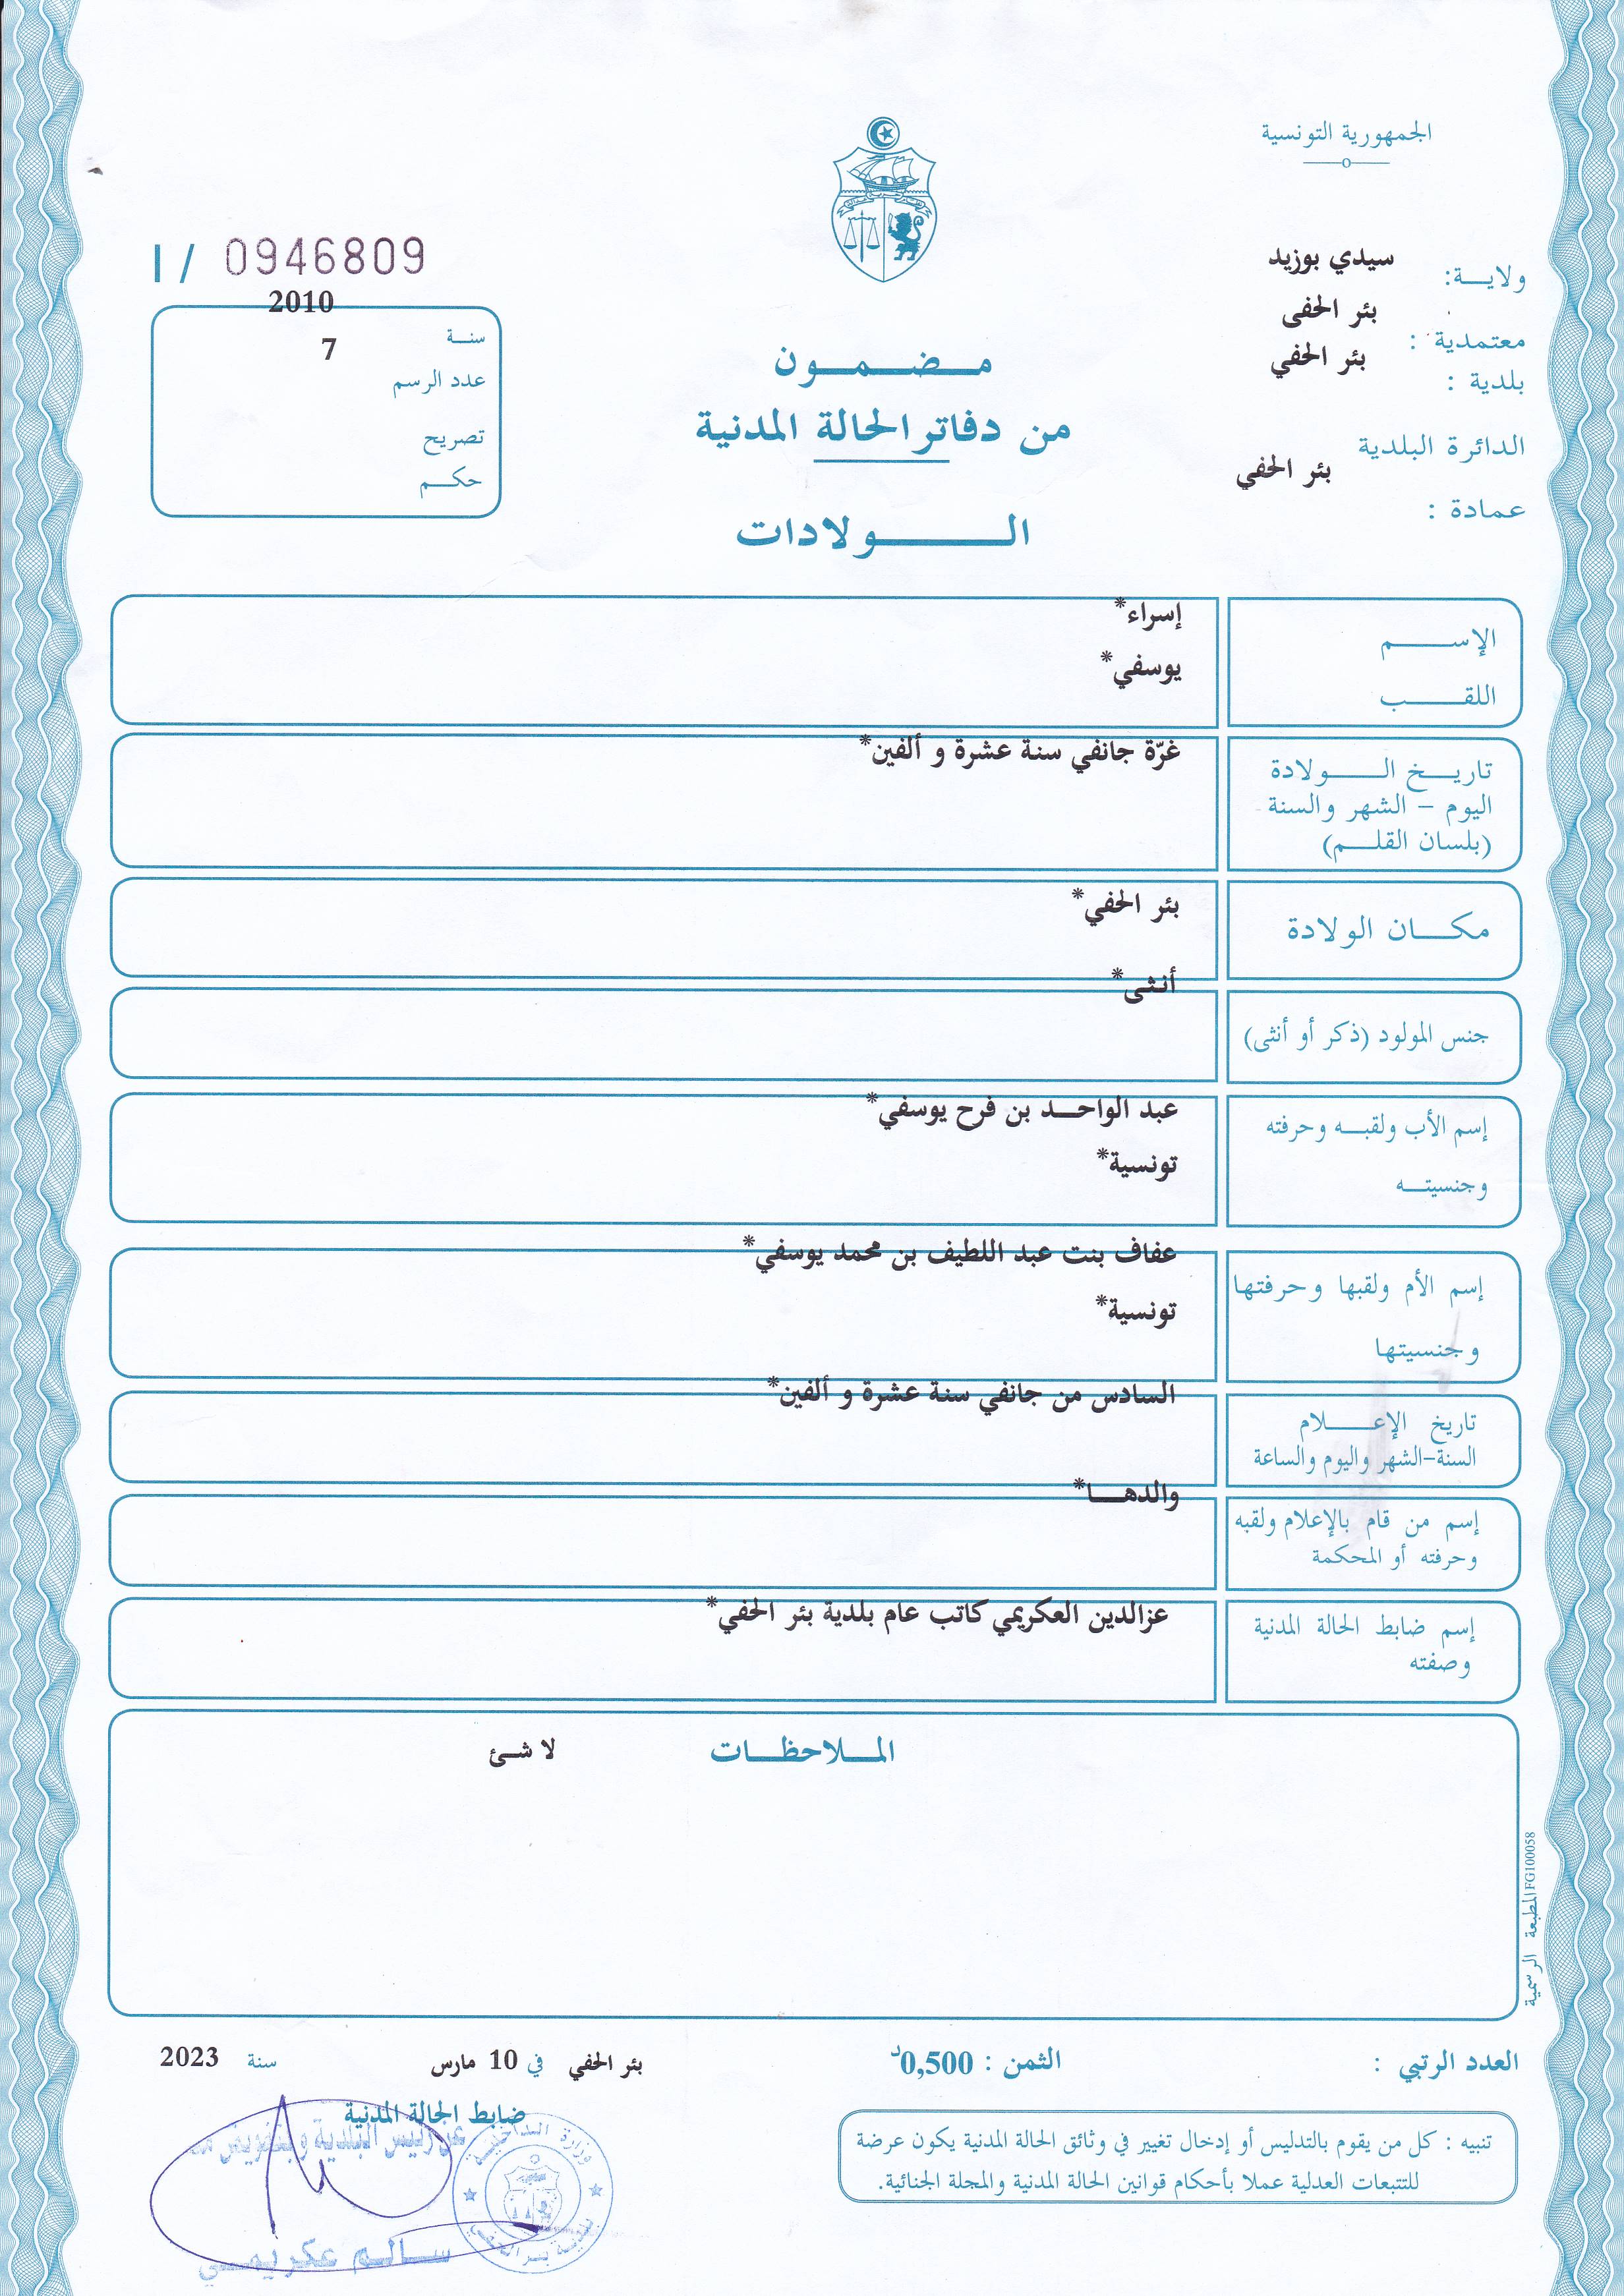 الجمهورية التونسية
ولايــة: سيدي بوزيد
معتمدية : بئر الحفى
بلدية : بئر الحفي
الدائرة البلدية بئر الحفي
عمادة :
I / 0946809
سنـة 2010
عدد الرسم 7
تصريح
حكــم
مـضـمـون
من دفاتر الحالة المدنية
الــولادات
الإســـم إسراء*
اللقــب يوسفي*
تاريــخ الــولادة غرّة جانفي سنة عشرة و ألفين*
اليوم – الشهر والسنة
(بلسان القلــم)
مكــان الولادة بئر الحفي*
جنس المولود (ذكر أو أنثى) أنثى*
إسم الأب ولقبـه وحرفته عبد الواحـد بن فرح يوسفي*
وجنسيتـه تونسية*
إسم الأم ولقبها وحرفتها عفاف بنت عبد اللطيف بن محمد يوسفي*
وجنسيتها تونسية*
تاريخ الإعــلام السادس من جانفي سنة عشرة و ألفين*
السنة-الشهر واليوم والساعة
إسم من قام بالإعلام ولقبه والدهــا*
وحرفته أو المحكمة
إسم ضابط الحالة المدنية عزالدين العكريمي كاتب عام بلدية بئر الحفي*
وصفته
المــلاحظــات لا شئ
المطبعة الرسمية FG100058
العدد الرتبي :
الثمن : 0,500د
بئر الحفي في 10 مارس سنة 2023
ضابط الحالة المدنية
عن رئيس البلدية وبتفويض منه
سـالـم عكريمـي
وزارة الداخلية
بلدية بئر الحفي
تنبيه : كل من يقوم بالتدليس أو إدخال تغيير في وثائق الحالة المدنية يكون عرضة
للتتبعات العدلية عملا بأحكام قوانين الحالة المدنية والمجلة الجنائية.